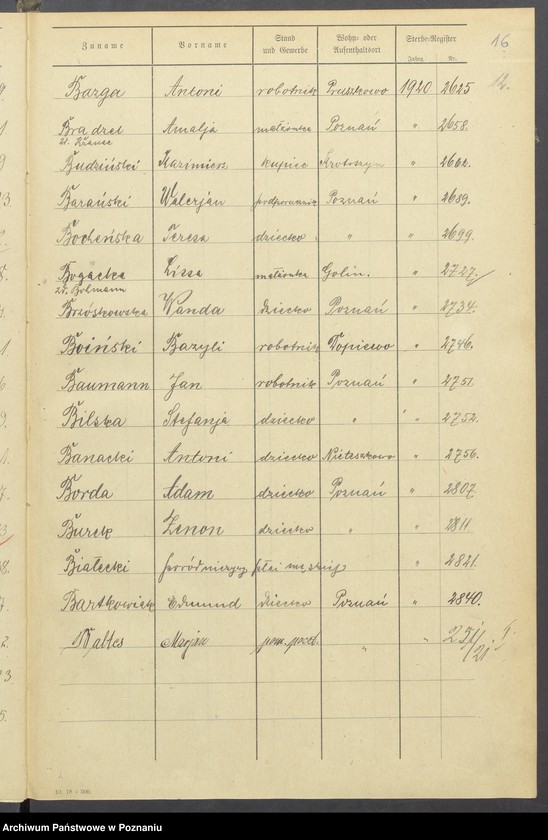 16
12.
Zuname Vorname Stand und Gewerbe Wohn- oder Aufenthaltsort Sterbe-Register Jahrg. Nr.
Bazga Antoni robotnik Pruszkowo 1920 2625
Bradzel Amalja mężatka Poznań " 2658.
zd. Kranc
Budziński Kazimierz kupiec Krotoszyn " 2662.
Barański Walerjan podporucznik Poznań " 2689.
Bocheńska Teresa dziecko " " 2699.
Bogacka Lissa mężatka Golin. " 2727.
zd. Bolmann
Brzóskowska Wanda dziecko Poznań " 2734.
Boiński Bazyli robotnik Dopiewo " 2746.
Baumann Jan robotnik Poznań " 2751.
Bilska Stefanja dziecko " " 2752.
Banacki Antoni dziecko Nietaszkowo " 2756.
Borda Adam dziecko Poznań " 2807.
Burek Zenon dziecko " " 2811
Białecki poród nieżywy płci męskiej " 2821.
Bartkowiak Edmund dziecko Poznań " 2840.
Marjan pom. poczt. " " 251/21
Archiwum Państwowe w Poznaniu